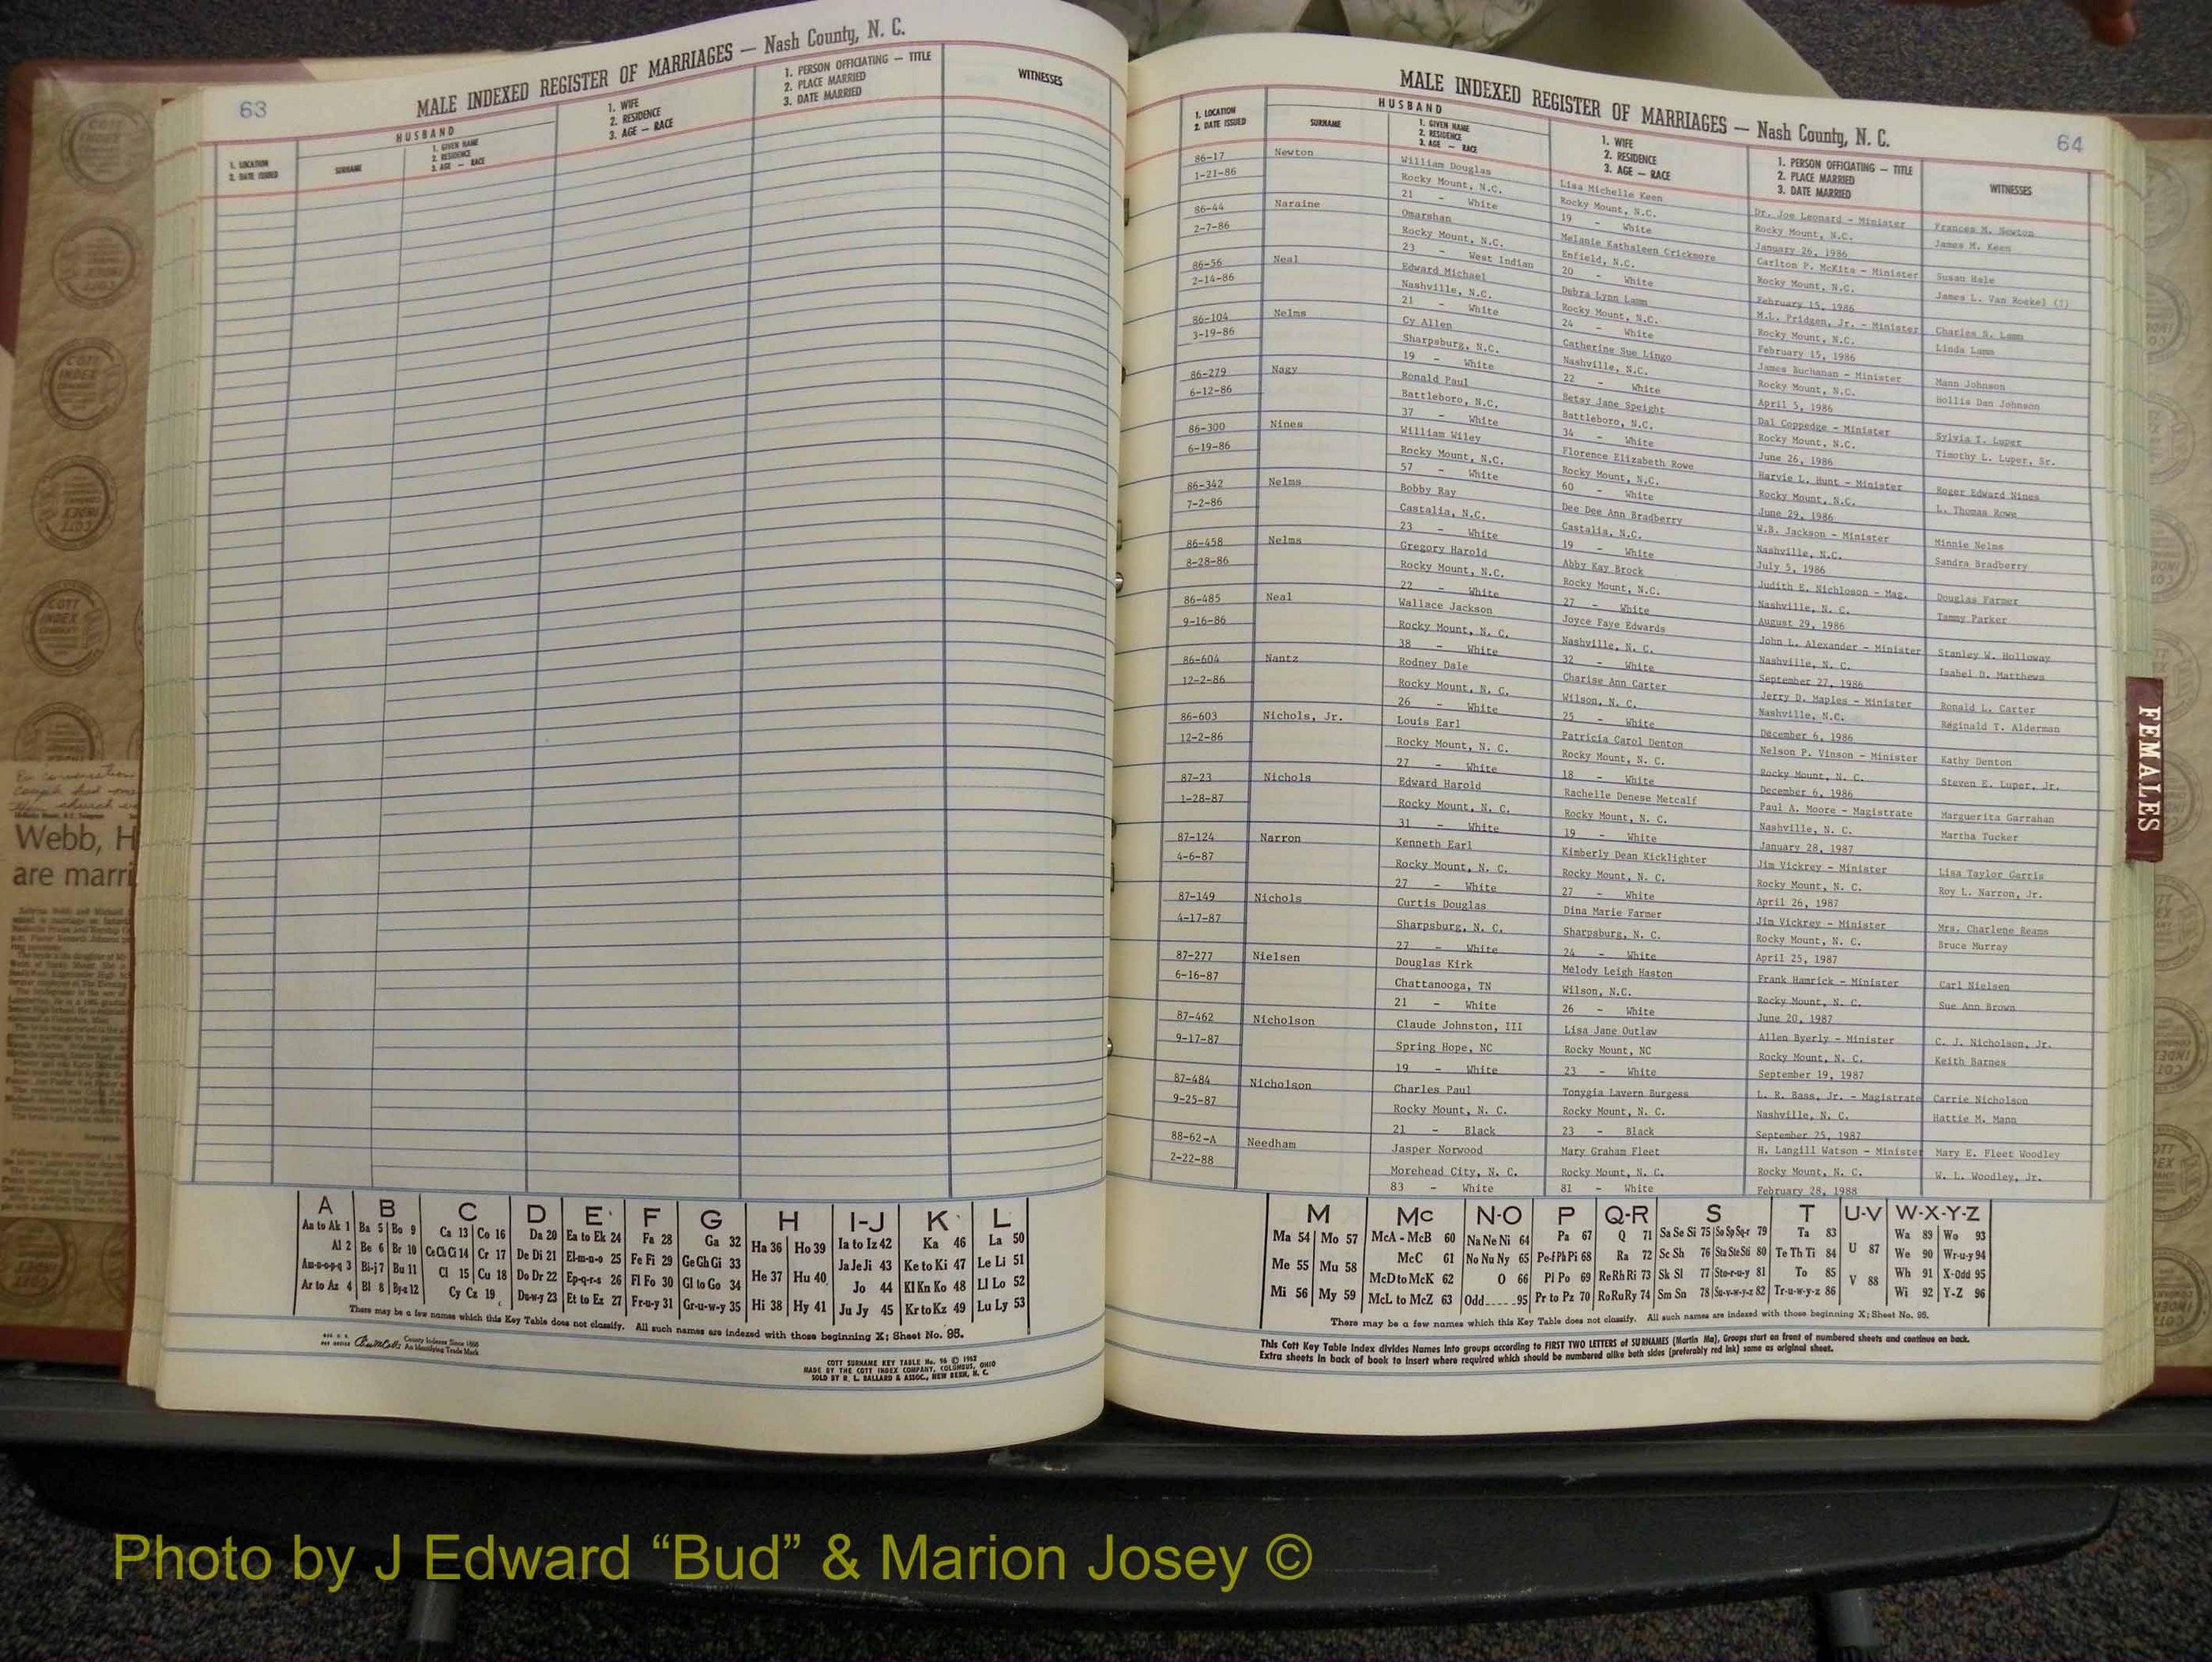 63
MALE INDEXED REGISTER OF MARRIAGES — Nash County, N. C.
1. LOCATION
2. DATE ISSUED
HUSBAND
SURNAME
1. GIVEN NAME
2. RESIDENCE
3. AGE — RACE
1. WIFE
2. RESIDENCE
3. AGE — RACE
1. PERSON OFFICIATING — TITLE
2. PLACE MARRIED
3. DATE MARRIED
WITNESSES
Webb, H
are marri
A B C D E F G H I-J K L
Aa to Ak 1 Ba 5 Bo 9 Ca 13 Co 16 Da 20 Ea to Ek 24 Fa 28 Ga 32 Ha 36 Ho 39 Ia to Iz 42 Ka 46 La 50
Al 2 Be 6 Br 10 Ce Ch Ci 14 Cr 17 De Di 21 El-m-n-o 25 Fe Fi 29 Ge Gh Gi 33 Ja Je Ji 43 Ke to Ki 47 Le Li 51
Am-n-o-p-q 3 Bi-j 7 Bu 11 Cl 15 Cu 18 Do Dr 22 Ep-q-r-s 26 Fl Fo 30 Gl to Go 34 He 37 Hu 40 Jo 44 Kl Kn Ko 48 Ll Lo 52
Ar to Az 4 Bl 8 By-z 12 Cy Cz 19 Du-w-y 23 Et to Ez 27 Fr-u-y 31 Gr-u-w-y 35 Hi 38 Hy 41 Ju Jy 45 Kr to Kz 49 Lu Ly 53
There may be a few names which this Key Table does not classify. All such names are indexed with those beginning X; Sheet No. 95.
County Indexes Since 1888
An Identifying Trade Mark
COTT SURNAME KEY TABLE No. 96 © 1962
MADE BY THE COTT INDEX COMPANY, COLUMBUS, OHIO
SOLD BY R. L. BALLARD & ASSOC., NEW BERN, N. C.
64
MALE INDEXED REGISTER OF MARRIAGES — Nash County, N. C.
1. LOCATION
2. DATE ISSUED
HUSBAND
SURNAME
1. GIVEN NAME
2. RESIDENCE
3. AGE — RACE
1. WIFE
2. RESIDENCE
3. AGE — RACE
1. PERSON OFFICIATING — TITLE
2. PLACE MARRIED
3. DATE MARRIED
WITNESSES
86-17 Newton William Douglas Lisa Michelle Keen Dr. Joe Leonard - Minister Frances M. Newton
1-21-86 Rocky Mount, N.C. Rocky Mount, N.C. Rocky Mount, N.C. James M. Keen
21 - White 19 - White January 26, 1986
86-44 Naraine Omarshan Melanie Kathaleen Crickmore Carlton P. McKita - Minister Susan Hale
2-7-86 Rocky Mount, N.C. Enfield, N.C. Rocky Mount, N.C. James L. Van Roekel (?)
23 - West Indian 20 - White February 15, 1986
86-56 Neal Edward Michael Debra Lynn Lamm M.L. Pridgen, Jr. - Minister Charles N. Lamm
2-14-86 Nashville, N.C. Rocky Mount, N.C. Rocky Mount, N.C. Linda Lamm
21 - White 24 - White February 15, 1986
86-104 Nelms Cy Allen Catherine Sue Lingo James Buchanan - Minister Mann Johnson
3-19-86 Sharpsburg, N.C. Nashville, N.C. Rocky Mount, N.C. Hollis Dan Johnson
19 - White 22 - White April 5, 1986
86-279 Nagy Ronald Paul Betsy Jane Speight Dal Coppedge - Minister Sylvia T. Luper
6-12-86 Battleboro, N.C. Battleboro, N.C. Rocky Mount, N.C. Timothy L. Luper, Sr.
37 - White 34 - White June 26, 1986
86-300 Nines William Wiley Florence Elizabeth Rowe Harvie L. Hunt - Minister Roger Edward Nines
6-19-86 Rocky Mount, N.C. Rocky Mount, N.C. Rocky Mount, N.C. L. Thomas Rowe
57 - White 60 - White June 29, 1986
86-342 Nelms Bobby Ray Dee Dee Ann Bradberry W.B. Jackson - Minister Minnie Nelms
7-2-86 Castalia, N.C. Castalia, N.C. Nashville, N.C. Sandra Bradberry
23 - White 19 - White July 5, 1986
86-458 Nelms Gregory Harold Abby Kay Brock Judith E. Nichloson - Mag. Douglas Farmer
8-28-86 Rocky Mount, N.C. Rocky Mount, N.C. Nashville, N. C. Tammy Parker
22 - White 27 - White August 29, 1986
86-485 Neal Wallace Jackson Joyce Faye Edwards John L. Alexander - Minister Stanley W. Holloway
9-16-86 Rocky Mount, N. C. Nashville, N. C. Nashville, N. C. Isabel D. Matthews
38 - White 32 - White September 27, 1986
86-604 Nantz Rodney Dale Charise Ann Carter Jerry D. Maples - Minister Ronald L. Carter
12-2-86 Rocky Mount, N. C. Wilson, N. C. Nashville, N.C. Reginald T. Alderman
26 - White 25 - White December 6, 1986
86-603 Nichols, Jr. Louis Earl Patricia Carol Denton Nelson P. Vinson - Minister Kathy Denton
12-2-86 Rocky Mount, N. C. Rocky Mount, N. C. Rocky Mount, N. C. Steven E. Luper, Jr.
27 - White 18 - White December 6, 1986
87-23 Nichols Edward Harold Rachelle Denese Metcalf Paul A. Moore - Magistrate Marguerita Garrahan
1-28-87 Rocky Mount, N. C. Rocky Mount, N. C. Nashville, N. C. Martha Tucker
31 - White 19 - White January 28, 1987
87-124 Narron Kenneth Earl Kimberly Dean Kicklighter Jim Vickrey - Minister Lisa Taylor Garris
4-6-87 Rocky Mount, N. C. Rocky Mount, N. C. Rocky Mount, N. C. Roy L. Narron, Jr.
27 - White 27 - White April 26, 1987
87-149 Nichols Curtis Douglas Dina Marie Farmer Jim Vickrey - Minister Mrs. Charlene Reams
4-17-87 Sharpsburg, N. C. Sharpsburg, N. C. Rocky Mount, N. C. Bruce Murray
27 - White 24 - White April 25, 1987
87-277 Nielsen Douglas Kirk Melody Leigh Haston Frank Hamrick - Minister Carl Nielsen
6-16-87 Chattanooga, TN Wilson, N.C. Rocky Mount, N. C. Sue Ann Brown
21 - White 26 - White June 20, 1987
87-462 Nicholson Claude Johnston, III Lisa Jane Outlaw Allen Byerly - Minister C. J. Nicholson, Jr.
9-17-87 Spring Hope, NC Rocky Mount, NC Rocky Mount, N. C. Keith Barnes
19 - White 23 - White September 19, 1987
87-484 Nicholson Charles Paul Tonygia Lavern Burgess L. R. Bass, Jr. - Magistrate Carrie Nicholson
9-25-87 Rocky Mount, N. C. Rocky Mount, N. C. Nashville, N. C. Hattie M. Mann
21 - Black 23 - Black September 25, 1987
88-62-A Needham Jasper Norwood Mary Graham Fleet H. Langill Watson - Minister Mary E. Fleet Woodley
2-22-88 Morehead City, N. C. Rocky Mount, N. C. Rocky Mount, N. C. W. L. Woodley, Jr.
83 - White 81 - White February 28, 1988
FEMALES
M Mc N-O P Q-R S T U-V W-X-Y-Z
Ma 54 Mo 57 McA - McB 60 Na Ne Ni 64 Pa 67 Q 71 Sa Se Si 75 So Sp Sq-r 79 Ta 83 U 87 Wa 89 Wo 93
Me 55 Mu 58 McC 61 No Nu Ny 65 Pe-f Ph Pi 68 Ra 72 Sc Sh 76 Sta Ste Sti 80 Te Th Ti 84 We 90 Wr-u-y 94
McD to McK 62 O 66 Pl Po 69 Re Rh Ri 73 Sk Sl 77 Sto-r-u-y 81 To 85 V 88 Wh 91 X-Odd 95
Mi 56 My 59 McL to McZ 63 Odd.....95 Pr to Pz 70 Ro Ru Ry 74 Sm Sn 78 Su-v-w-y-z 82 Tr-u-w-y-z 86 Wi 92 Y-Z 96
There may be a few names which this Key Table does not classify. All such names are indexed with those beginning X; Sheet No. 95.
This Cott Key Table Index divides Names into groups according to FIRST TWO LETTERS of SURNAMES (Martin Ma), Groups start on front of numbered sheets and continue on back.
Extra sheets in back of book to insert where required which should be numbered alike both sides (preferably red ink) same as original sheet.
Photo by J Edward “Bud” & Marion Josey ©